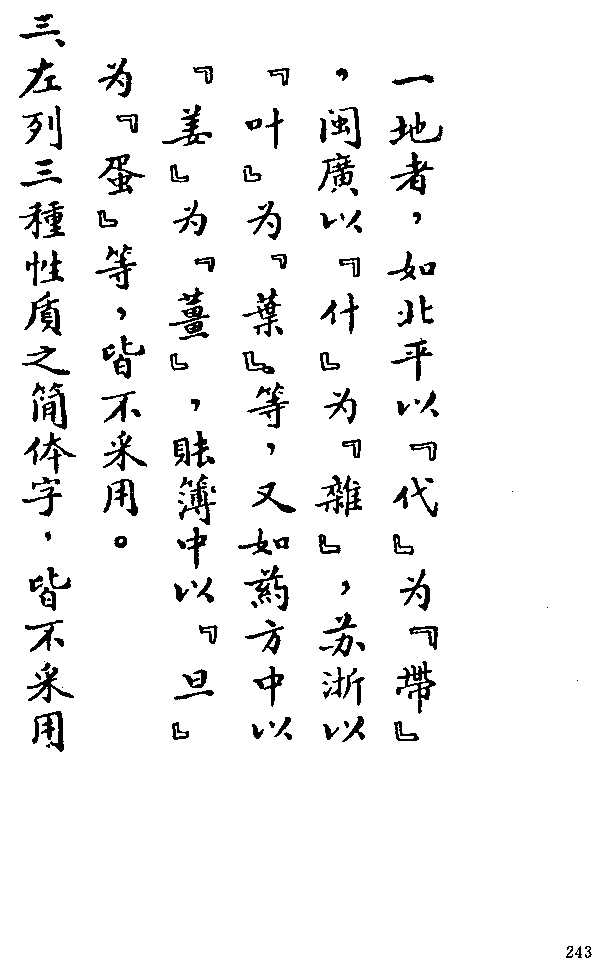 一地者，如北平以『代』为『帶』
，闽廣以『什』为『雜』，苏浙以
『叶』为『葉』。等，又如葯方中以
『姜』为『薑』，賬簿中以『旦』
为『蛋』等，皆不采用。
三、左列三種性质之简体字，皆不采用
243